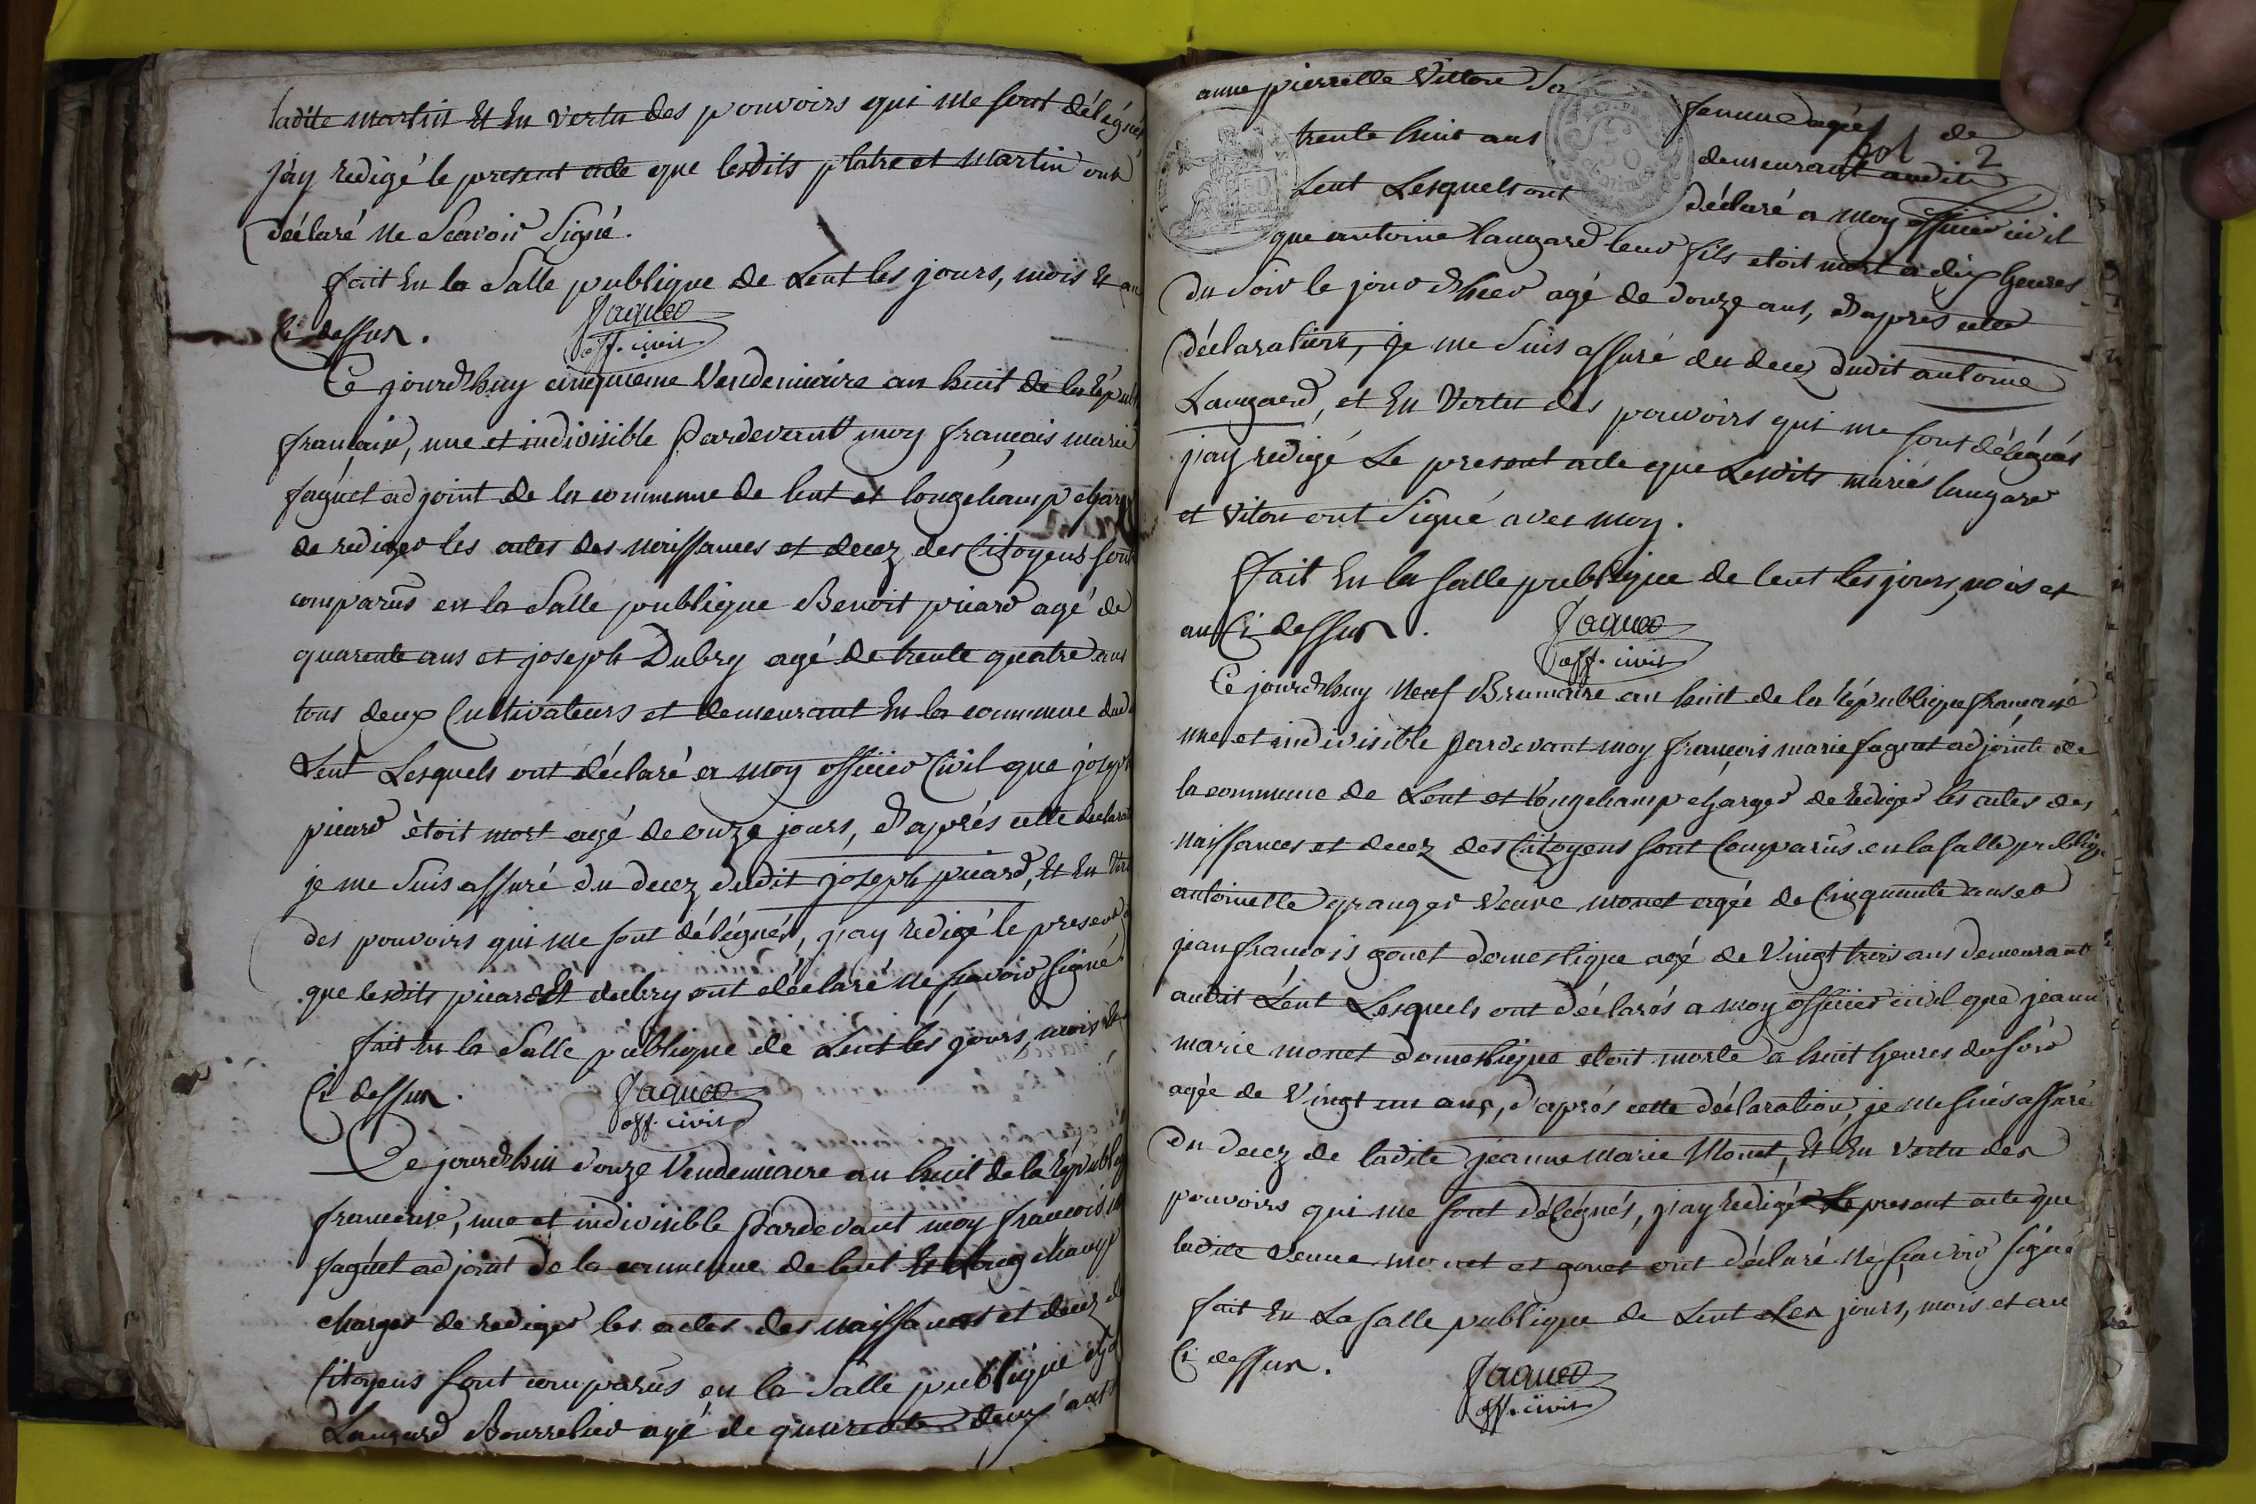 ladite martin Et En vertu des pouvoirs qui me sont délégués
j'ay redigé le present acte que lesdits platre et martin ont
déclaré ne Scavoir Signé.
fait En la Salle publique de Lent les jours, mois Et an
Ci dessus.
faguet
off. civil
Ce jourd'huy cinquieme Vendemiaire an huit de la Répub
française, une et indivisible Pardevant moy françois marie
faguet adjoint de la commune de lent et longchamp charg
de rediger les actes des naissances et decez des Citoyens sont
comparûs en la Salle publique Benoit picard agé de
quarente ans et joseph Dubry agé de trente quatre ans
tous deux Cultivateurs et demeurant En la commune dud
Lent Lesquels ont déclaré a moy officier Civil que joseph
picard étoit mort agé de onze jours, d'aprés cette declarat
je me Suis assuré du decez dudit joseph picard, Et En
des pouvoirs qui me sont délégués, j'ay redigé le present
que lesdits picard Et dubry ont déclaré ne sçavoir signé
fait En la Salle publique de Lent les jours, mois
Ci dessus.
faguet
off. civil
Ce jourd'hui douze Vendemiaire an huit de la Républ
françoise, une et indivisible Pardevant moy françois
faguet adjoint de la commune de lent Et Longchamp
charger de rediger les actes des naissances et decez d
Citoyens sont comparûs en la Salle publique
Laugard Bourrelier agé de quarente deux ans
anne pierrette Vitton Sa femme agée de
fol 2
trente huit ans demeurant audit
Lent Lesquels ont déclaré a moy officier civil
que antoine laugard leur fils etoit mort a dix heures
du Soir le jour d'hier agé de douze ans, d'aprés cette
déclaration, je me Suis assuré du decez dudit antoine
Laugard, et En Vertu des pouvoirs qui me sont délégués
j'ay redigé Le present acte que Lesdits mariés laugard
et viton ont Signé avec moy.
fait En la salle publique de lent les jours, mois et
an Ci dessus.
faguet
off. civil
Ce jourd'huy neuf Brumaire an huit de la République française
une et indivisible Pardevant moy françois marie faguet adjoint de
la commune de Lent et Longchamp charger de rediger les actes des
naissances et decez des Citoyens sont Comparûs en la salle publiq
antoinette granger Veuve monet agée de Cinquante ans et
jean françois gonet domestique agé de Vingt trois ans demeurant
audit Lent Lesquels ont déclarés a moy officier civil que jeanne
marie monet domestique etoit morte a huit heures du soir
agée de Vingt un ans, d'aprés cette déclaration, je me suis assuré
du decez de ladite jeanne marie Monet, Et En vertu des
pouvoirs qui me sont délégués, j'ay redigé Le present acte que
ladite Veuve monet et gonet ont déclaré ne sçavoir signé
fait En La salle publique de Lent Les jours, mois et an
Ci dessus.
faguet
off. civil